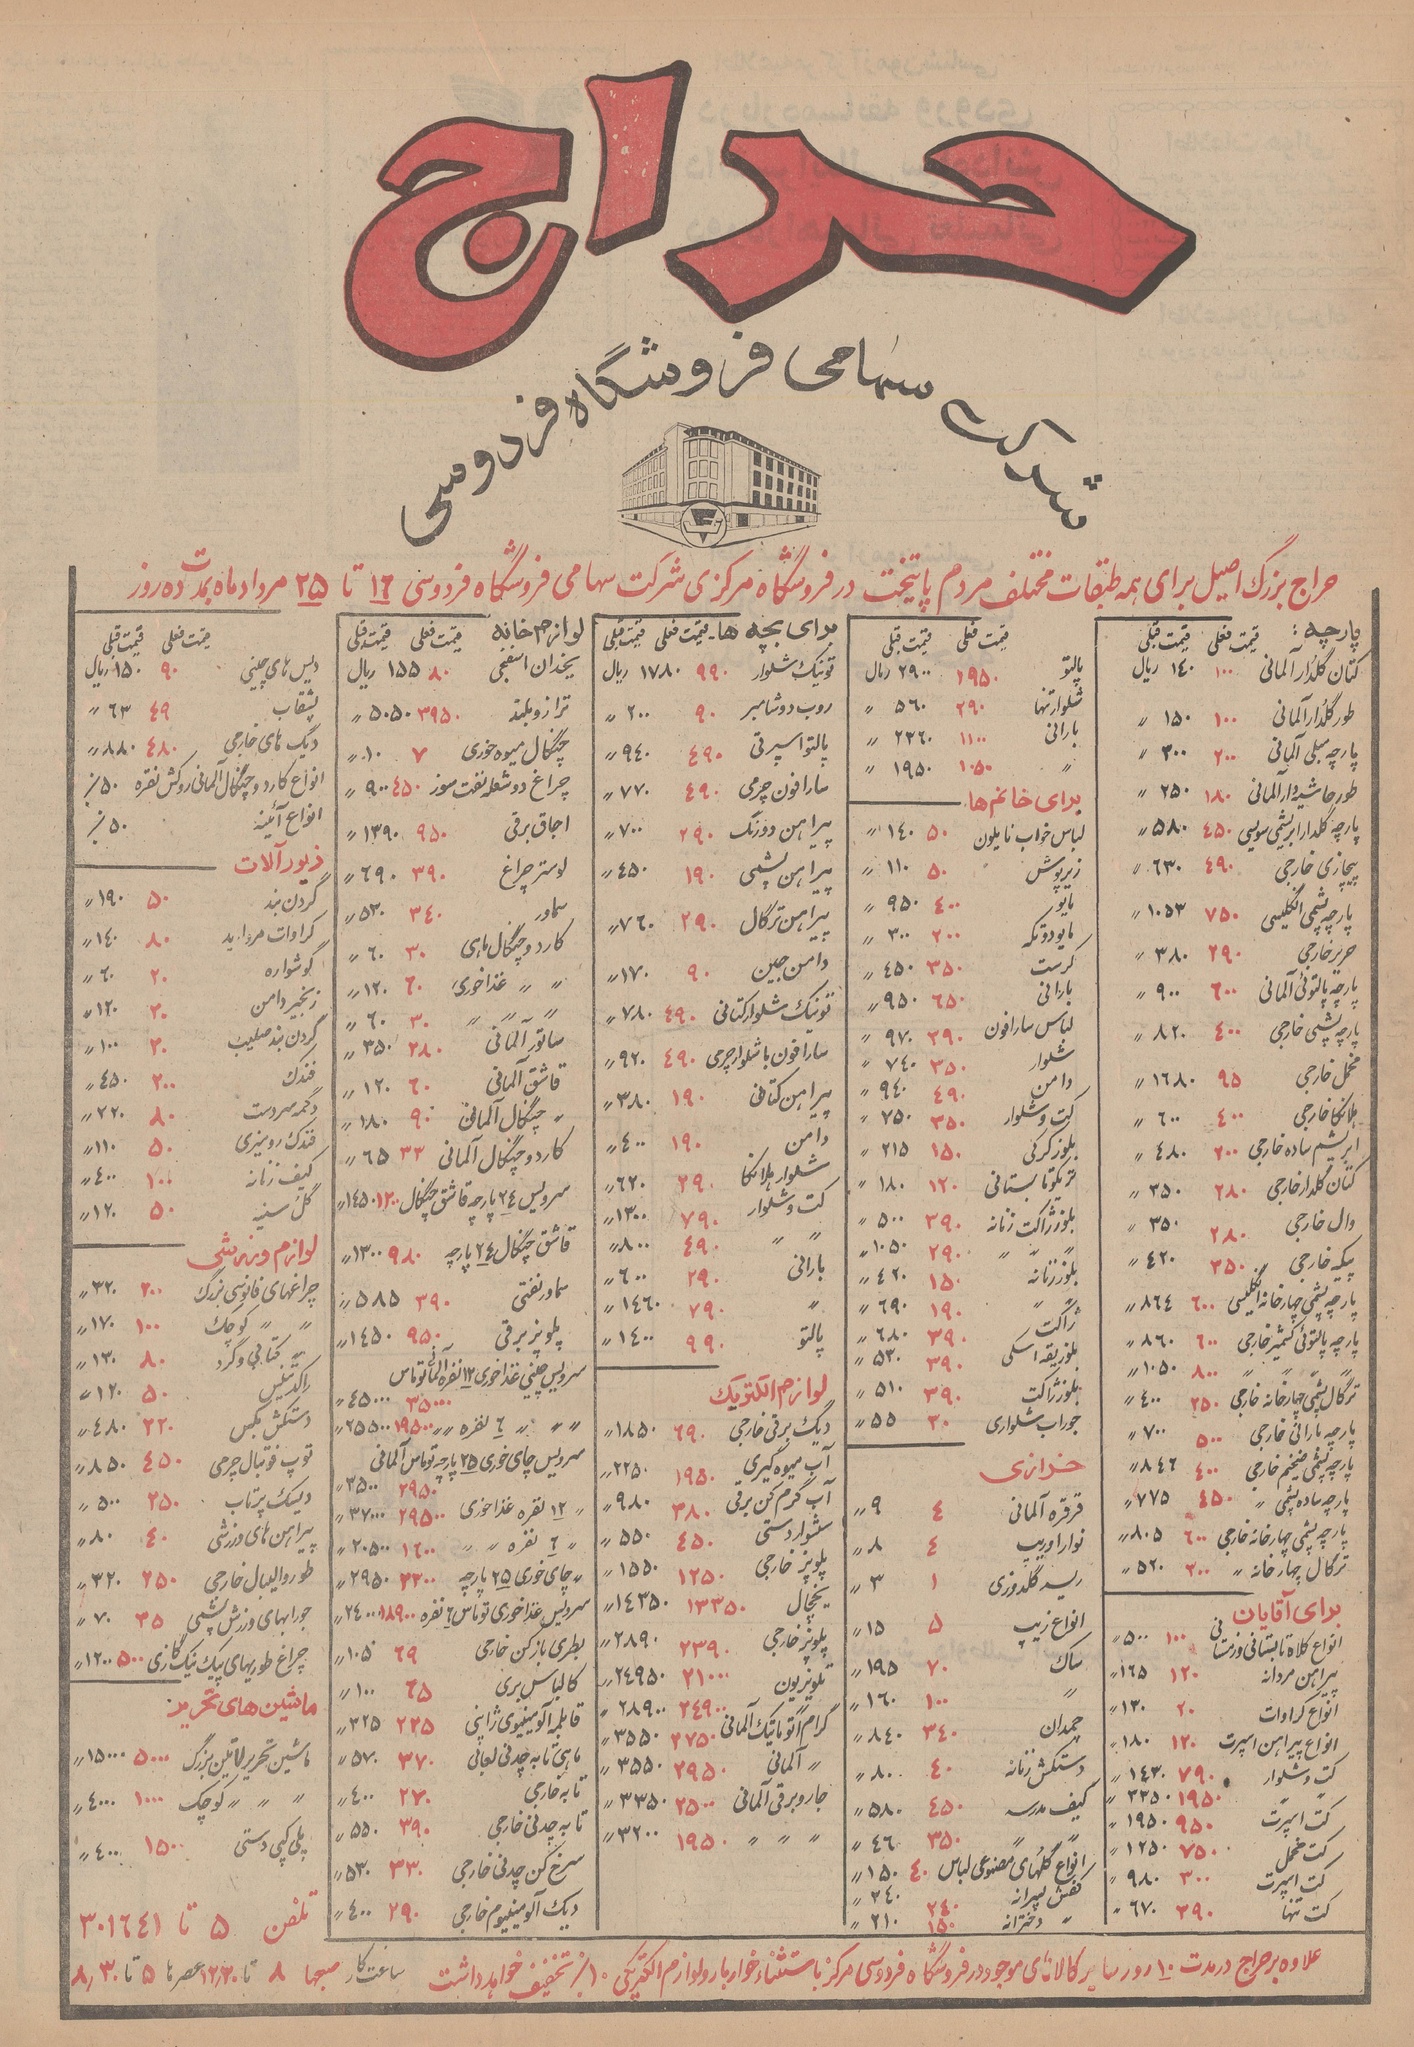 حراج
شرکت سهامی فروشگاه فردوسی
حراج بزرگ اصیل برای همه طبقات مختلف مردم پایتخت در فروشگاه مرکزی شرکت سهامی فروشگاه فردوسی ۱۶ تا ۲۵ مرداد ماه بمدت ده روز
پارچه: قیمت فعلی قیمت قبلی
کتان گلدار آلمانی ۱۰۰ ۱۴۰ ریال
طور گلدار آلمانی ۱۰۰ ۱۵۰ »
پارچه مبلی آلمانی ۲۰۰ ۳۰۰ »
طور حاشیه دار آلمانی ۱۸۰ ۲۵۰ »
پارچه گلدار ابریشمی سویسی ۴۵۰ ۵۸۰ »
پیچازی خارجی ۴۹۰ ۶۳۰ »
پارچه پشمی انگلیسی ۷۵۰ ۱۰۵۳ »
حریر خارجی ۲۹۰ ۳۸۰ »
پارچه پالتوئی آلمانی ۶۰۰ ۹۰۰ »
پارچه پشمی خارجی ۴۰۰ ۸۲۰ »
مخمل خارجی ۹۵ ۱۶۸۰ »
هلانکا خارجی ۴۰۰ ۶۰۰ »
ابریشم ساده خارجی ۲۰۰ ۴۸۰ »
کتان گلدار خارجی ۲۸۰ ۳۵۰ »
وال خارجی ۲۸۰ ۳۵۰ »
پیکه خارجی ۳۵۰ ۴۲۰ »
پارچه پشمی چهارخانه انگلیسی ۶۰۰ ۸۶۴ »
پارچه پالتوئی کشمیر خارجی ۶۰۰ ۸۶۰ »
» » » ۸۰۰ ۱۰۵۰ »
ترگال پشمی چهارخانه خارجی ۲۵۰ ۴۰۰ »
پارچه بارانی خارجی ۵۰۰ ۷۰۰ »
پارچه پشمی ضخیم خارجی ۴۰۰ ۸۴۶ »
پارچه ساده پشمی » ۴۵۰ ۷۷۵ »
پارچه پشمی چهارخانه خارجی ۶۰۰ ۸۰۵ »
ترگال چهارخانه » ۳۰۰ ۵۲۰ »
برای آقایان
انواع کلاه تابستانی و زمستانی ۱۰۰ ۵۰۰ »
پیراهن مردانه ۱۲۰ ۱۶۵ »
انواع کراوات ۲۰ ۱۳۰ »
انواع پیراهن اسپرت ۱۲۰ ۱۸۰ »
کت و شلوار ۷۹۰ ۱۴۳۰ »
۱۹۵۰ ۲۲۵۰ »
کت اسپرت ۹۵۰ ۱۹۵۰ »
کت مخمل ۷۵۰ ۱۲۵۰ »
کت اسپرت ۳۰۰ ۹۸۰ »
کت تنها ۲۹۰ ۶۷۰ »
قیمت فعلی قیمت قبلی
پالتو ۱۹۵۰ ۲۹۰۰ ریال
شلوار تنها ۲۹۰ ۵۶۰ »
بارانی ۱۱۰۰ ۲۳۶۰ »
» ۱۰۵۰ ۱۹۵۰ »
برای خانم ها
لباس خواب نایلون ۵۰ ۱۴۰ »
زیرپوش ۵۰ ۱۱۰ »
مایو ۴۰۰ ۹۵۰ »
مایو دو تکه ۲۰۰ ۳۰۰ »
کرست ۳۵۰ ۴۵۰ »
بارانی ۶۵۰ ۹۵۰ »
لباس سارافون ۲۹۰ ۹۷۰ »
شلوار ۳۵۰ ۷۴۰ »
دامن ۴۹۰ ۹۴۰ »
کت و شلوار ۳۵۰ ۷۵۰ »
بلوز کرکی ۱۵۰ ۲۱۵ »
تریکو تابستانی ۱۲۰ ۱۸۰ »
بلوز ژاکت زنانه ۳۹۰ ۵۰۰ »
» » » ۲۹۰ ۱۰۵۰ »
بلوز زنانه ۱۵۰ ۴۲۰ »
» » ۱۹۰ ۶۹۰ »
ژاکت ۳۹۰ ۶۸۰ »
بلوز یقه اسکی ۳۹۰ ۵۳۰ »
بلوز ژاکت ۳۹۰ ۵۱۰ »
جوراب شلواری ۳۰ ۵۵ »
خرازی
قرقره آلمانی ۴ ۹ »
نوار اوریب ۴ ۸ »
ریسه گلدوزی ۱ ۳ »
انواع زیپ ۵ ۱۵ »
ساک ۷۰ ۱۹۵ »
» ۱۰۰ ۱۶۰ »
چمدان ۳۴۰ ۸۴۰ »
دستکش زنانه ۴۰ ۸۰ »
کیف مدرسه ۴۵۰ ۵۸۰ »
» » ۳۵۰ ۴۶ »
انواع گلهای مصنوعی لباس ۴۰ ۱۵۰ »
کفش پسرانه ۲۴۰ ۳۴۰
» دخترانه ۱۵۰ ۲۱۰ »
برای بچه ها - قیمت فعلی قیمت قبلی
تونیک شلوار ۹۹۰ ۱۷۸۰ ریال
روب دوشامبر ۹۰ ۲۰۰ »
پالتو اسپرتی ۴۹۰ ۹۴۰ »
سارافون چرمی ۴۹۰ ۷۷۰ »
پیراهن دو رنگ ۲۹۰ ۷۰۰ »
پیراهن پشمی ۱۹۰ ۴۵۰ »
پیراهن ترگال ۲۹۰ ۷۶۰ »
دامن جین ۹۰ ۱۷۰ »
تونیک شلوار کتانی ۴۹۰ ۷۸۰ »
سارافون با شلوار چرمی ۴۹۰ ۹۲۰ »
پیراهن کتانی ۱۹۰ ۳۸۰ »
دامن ۱۹۰ ۴۰۰ »
شلوار هلانکا ۲۹۰ ۶۲۰ »
کت و شلوار ۷۹۰ ۱۳۰۰ »
» » ۴۹۰ ۸۰۰ »
بارانی ۲۹۰ ۶۰۰ »
» ۷۹۰ ۱۴۶۰ »
پالتو ۹۹۰ ۱۴۰۰ »
لوازم الکتریک
دیگ برقی خارجی ۶۹۰ ۱۸۵۰ »
آب میوه گیری ۱۹۵۰ ۲۲۵۰ »
آب گرم کن برقی ۳۸۰ ۹۸۰ »
سشوار دستی ۴۵۰ ۵۵۰ »
پلوپز خارجی ۱۲۵۰ ۱۵۵۰ »
یخچال ۱۳۳۵۰ ۱۴۳۵۰ »
پلوپز خارجی ۲۳۹۰ ۲۸۹۰ »
تلویزیون ۲۱۰۰۰ ۲۴۹۵۰ »
۲۴۹۰۰ ۲۸۹۰۰ »
گرام اتوماتیک آلمانی ۲۷۵۰ ۳۵۵۰ »
» آلمانی ۲۹۵۰ ۳۵۵۰ »
جاروبرقی آلمانی ۲۵۰۰ ۳۳۵۰ »
» » » ۱۹۵۰ ۳۲۰۰ »
لوازم خانه قیمت فعلی قیمت قبلی
یخدان اسفنجی ۸۰ ۱۵۵ ریال
ترازو بلند ۳۹۵۰ ۵۰۵۰ »
چنگال میوه خوری ۷ ۱۰ »
چراغ دو شعله نفت سوز ۴۵۰ ۹۰۰ »
اجاق برقی ۹۵۰ ۱۳۹۰ »
لوستر چراغ ۳۹۰ ۶۹۰ »
سماور ۳۴۰ ۵۳۰ »
کارد و چنگال ماهی ۳۰ ۶۰ »
» » غذاخوری ۶۰ ۱۲۰ »
» » » ۳۰ ۶۰ »
ساتور آلمانی ۲۸۰ ۳۵۰ »
قاشق آلمانی ۶۰ ۱۲۰ »
» چنگال آلمانی ۹۰ ۱۸۰ »
کارد و چنگال آلمانی ۳۳ ۶۵ »
سرویس ۲۴ پارچه قاشق چنگال ۱۲۰۰ ۱۴۵۰ »
قاشق چنگال ۲۴ پارچه ۹۸۰ ۱۳۰۰ »
سماور نفتی ۳۹۰ ۵۸۵ »
پلوپز برقی ۹۵۰ ۱۴۵۰ »
سرویس چینی غذاخوری ۱۲ نفره آلمانی توماس
۳۵۰۰۰ ۴۵۰۰۰ »
» » » ۶ نفره » » ۱۹۵۰۰ ۲۵۵۰۰ »
سرویس چای خوری ۲۵ پارچه توماس آلمانی
۲۹۵۰ ۳۵۰۰ »
» ۱۲ نفره غذاخوری ۲۹۵۰۰ ۳۷۰۰۰ »
» ۶ نفره » » ۱۶۰۰ ۲۰۵۰۰ »
» چای خوری ۲۵ پارچه ۲۲۰۰ ۲۹۵۰ »
سرویس غذاخوری توماس ۶ نفره ۱۸۹۰۰ ۲۴۰۰۰ »
بطری بازکن خارجی ۶۹ ۱۰۵ »
کالباس بری ۶۵ ۱۰۰ »
قابلمه آلومینیوی ژاپنی ۲۲۵ ۳۲۵ »
ماهی تابه چدنی لعابی ۳۷۰ ۵۷۰ »
تابه خارجی ۲۷۰ ۴۰۰ »
تابه چدنی خارجی ۳۹۰ ۵۵۰ »
سرخ کن چدنی خارجی ۳۳۰ ۵۳۰ »
دیگ آلومینیوم خارجی ۲۹۰ ۴۰۰ »
قیمت فعلی قیمت قبلی
دیس های چینی ۹۰ ۱۵۰ ریال
بشقاب ۴۹ ۶۳ »
دیگ های خارجی ۴۸۰ ۸۸۰ »
انواع کارد و چنگال آلمانی روکش نقره ۵۰٪
انواع آئینه ۵۰٪
زیورآلات
گردن بند ۵۰ ۱۹۰ »
کراوات مروارید ۸۰ ۱۴۰ »
گوشواره ۲۰ ۶۰ »
زنجیر دامن ۲۰ ۱۲۰ »
گردن بند صلیب ۲۰ ۱۰۰ »
فندک ۲۰۰ ۴۵۰ »
دگمه سردست ۸۰ ۲۲۰ »
فندک رومیزی ۵۰ ۱۱۰ »
کیف زنانه ۱۰۰ ۴۰۰ »
گل سینه ۵۰ ۱۲۰ »
لوازم ورزشی
چراغهای فانوسی بزرگ ۲۰۰ ۳۲۰ »
» » کوچک ۱۰۰ ۱۷۰ »
» کتابی و گرد ۸۰ ۱۳۰ »
راکت تنیس ۵۰ ۱۲۰ »
دستکش بکس ۲۲۰ ۴۸۰ »
توپ فوتبال چرمی ۴۵۰ ۸۵۰ »
دیسک پرتاب ۲۵۰ ۵۰۰ »
پیراهن های ورزشی ۴۰ ۸۰ »
طور والیبال خارجی ۲۵۰ ۳۲۰ »
جورابهای ورزش پشمی ۳۵ ۷۰ »
چراغ طوریهای پیک نیک گازی ۵۰۰ ۱۲۰۰ »
ماشین های تحریر
ماشین تحریر لاتین بزرگ ۵۰۰۰ ۱۵۰۰۰ »
» » » کوچک ۱۰۰۰ ۴۰۰۰ »
پلی کپی دستی ۱۵۰۰ ۴۰۰۰ »
تلفن ۵ تا ۳۰۱۶۴۱
علاوه بر حراج در مدت ۱۰ روز سایر کالاهای موجود در فروشگاه فردوسی مرکز باستثناء خواربار و لوازم الکتریکی ۱۰٪ تخفیف خواهد داشت ساعت کار صبحها ۸ تا ۱۲/۳۰ عصرها ۵ تا ۸/۳۰